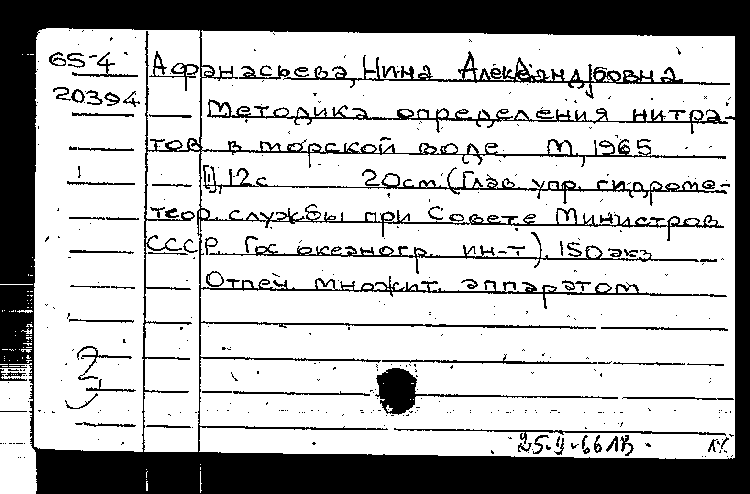 65-4 Афанасьева, Нина Александровна
20394 Методика определения нитра-
тов в морской воде. М., 1965
[1], 12 с 20см (Глав. упр. гидроме-
теор. службы при Совете Министров
СССР. Гос океаногр. ин-т). 150 экз
Отпеч. множит. аппаратом